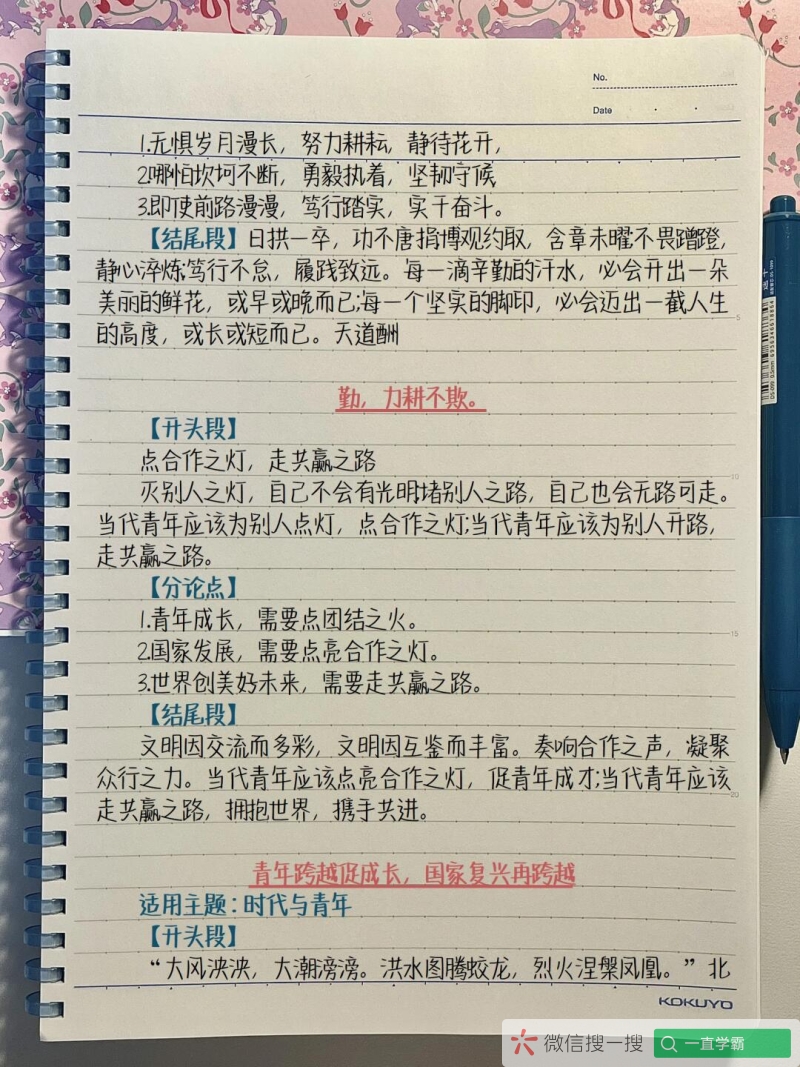 No.
Date
1.无惧岁月漫长，努力耕耘，静待花开，
2.哪怕坎坷不断，勇毅执着，坚韧守候
3.即使前路漫漫，笃行踏实，实干奋斗。
【结尾段】日拱一卒，功不唐捐博观约取，含章未曜不畏蹭蹬，
静心淬炼笃行不怠，履践致远。每一滴辛勤的汗水，必会开出一朵
美丽的鲜花，或早或晚而已;每一个坚实的脚印，必会迈出一截人生
的高度，或长或短而已。天道酬
勤，力耕不欺。
【开头段】
点合作之灯，走共赢之路
灭别人之灯，自己不会有光明;堵别人之路，自己也会无路可走。
当代青年应该为别人点灯，点合作之灯;当代青年应该为别人开路，
走共赢之路。
【分论点】
1.青年成长，需要点团结之火。
2.国家发展，需要点亮合作之灯。
3.世界创美好未来，需要走共赢之路。
【结尾段】
文明因交流而多彩，文明因互鉴而丰富。奏响合作之声，凝聚
众行之力。当代青年应该点亮合作之灯，促青年成才;当代青年应该
走共赢之路，拥抱世界，携手共进。
青年跨越促成长，国家复兴再跨越
适用主题：时代与青年
【开头段】
“大风泱泱，大潮滂滂。洪水图腾蛟龙，烈火涅槃凤凰。”北
KOKUYO
微信搜一搜
一直学霸